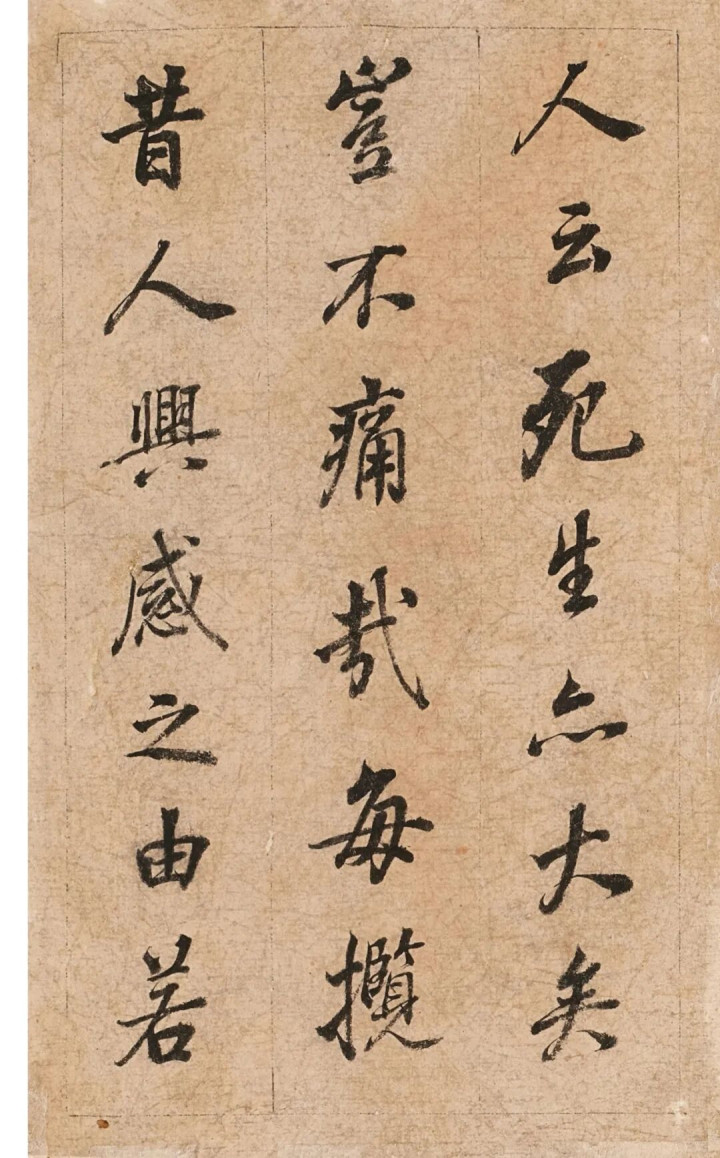 人云死生亦大矣
豈不痛哉每攬
昔人興感之由若